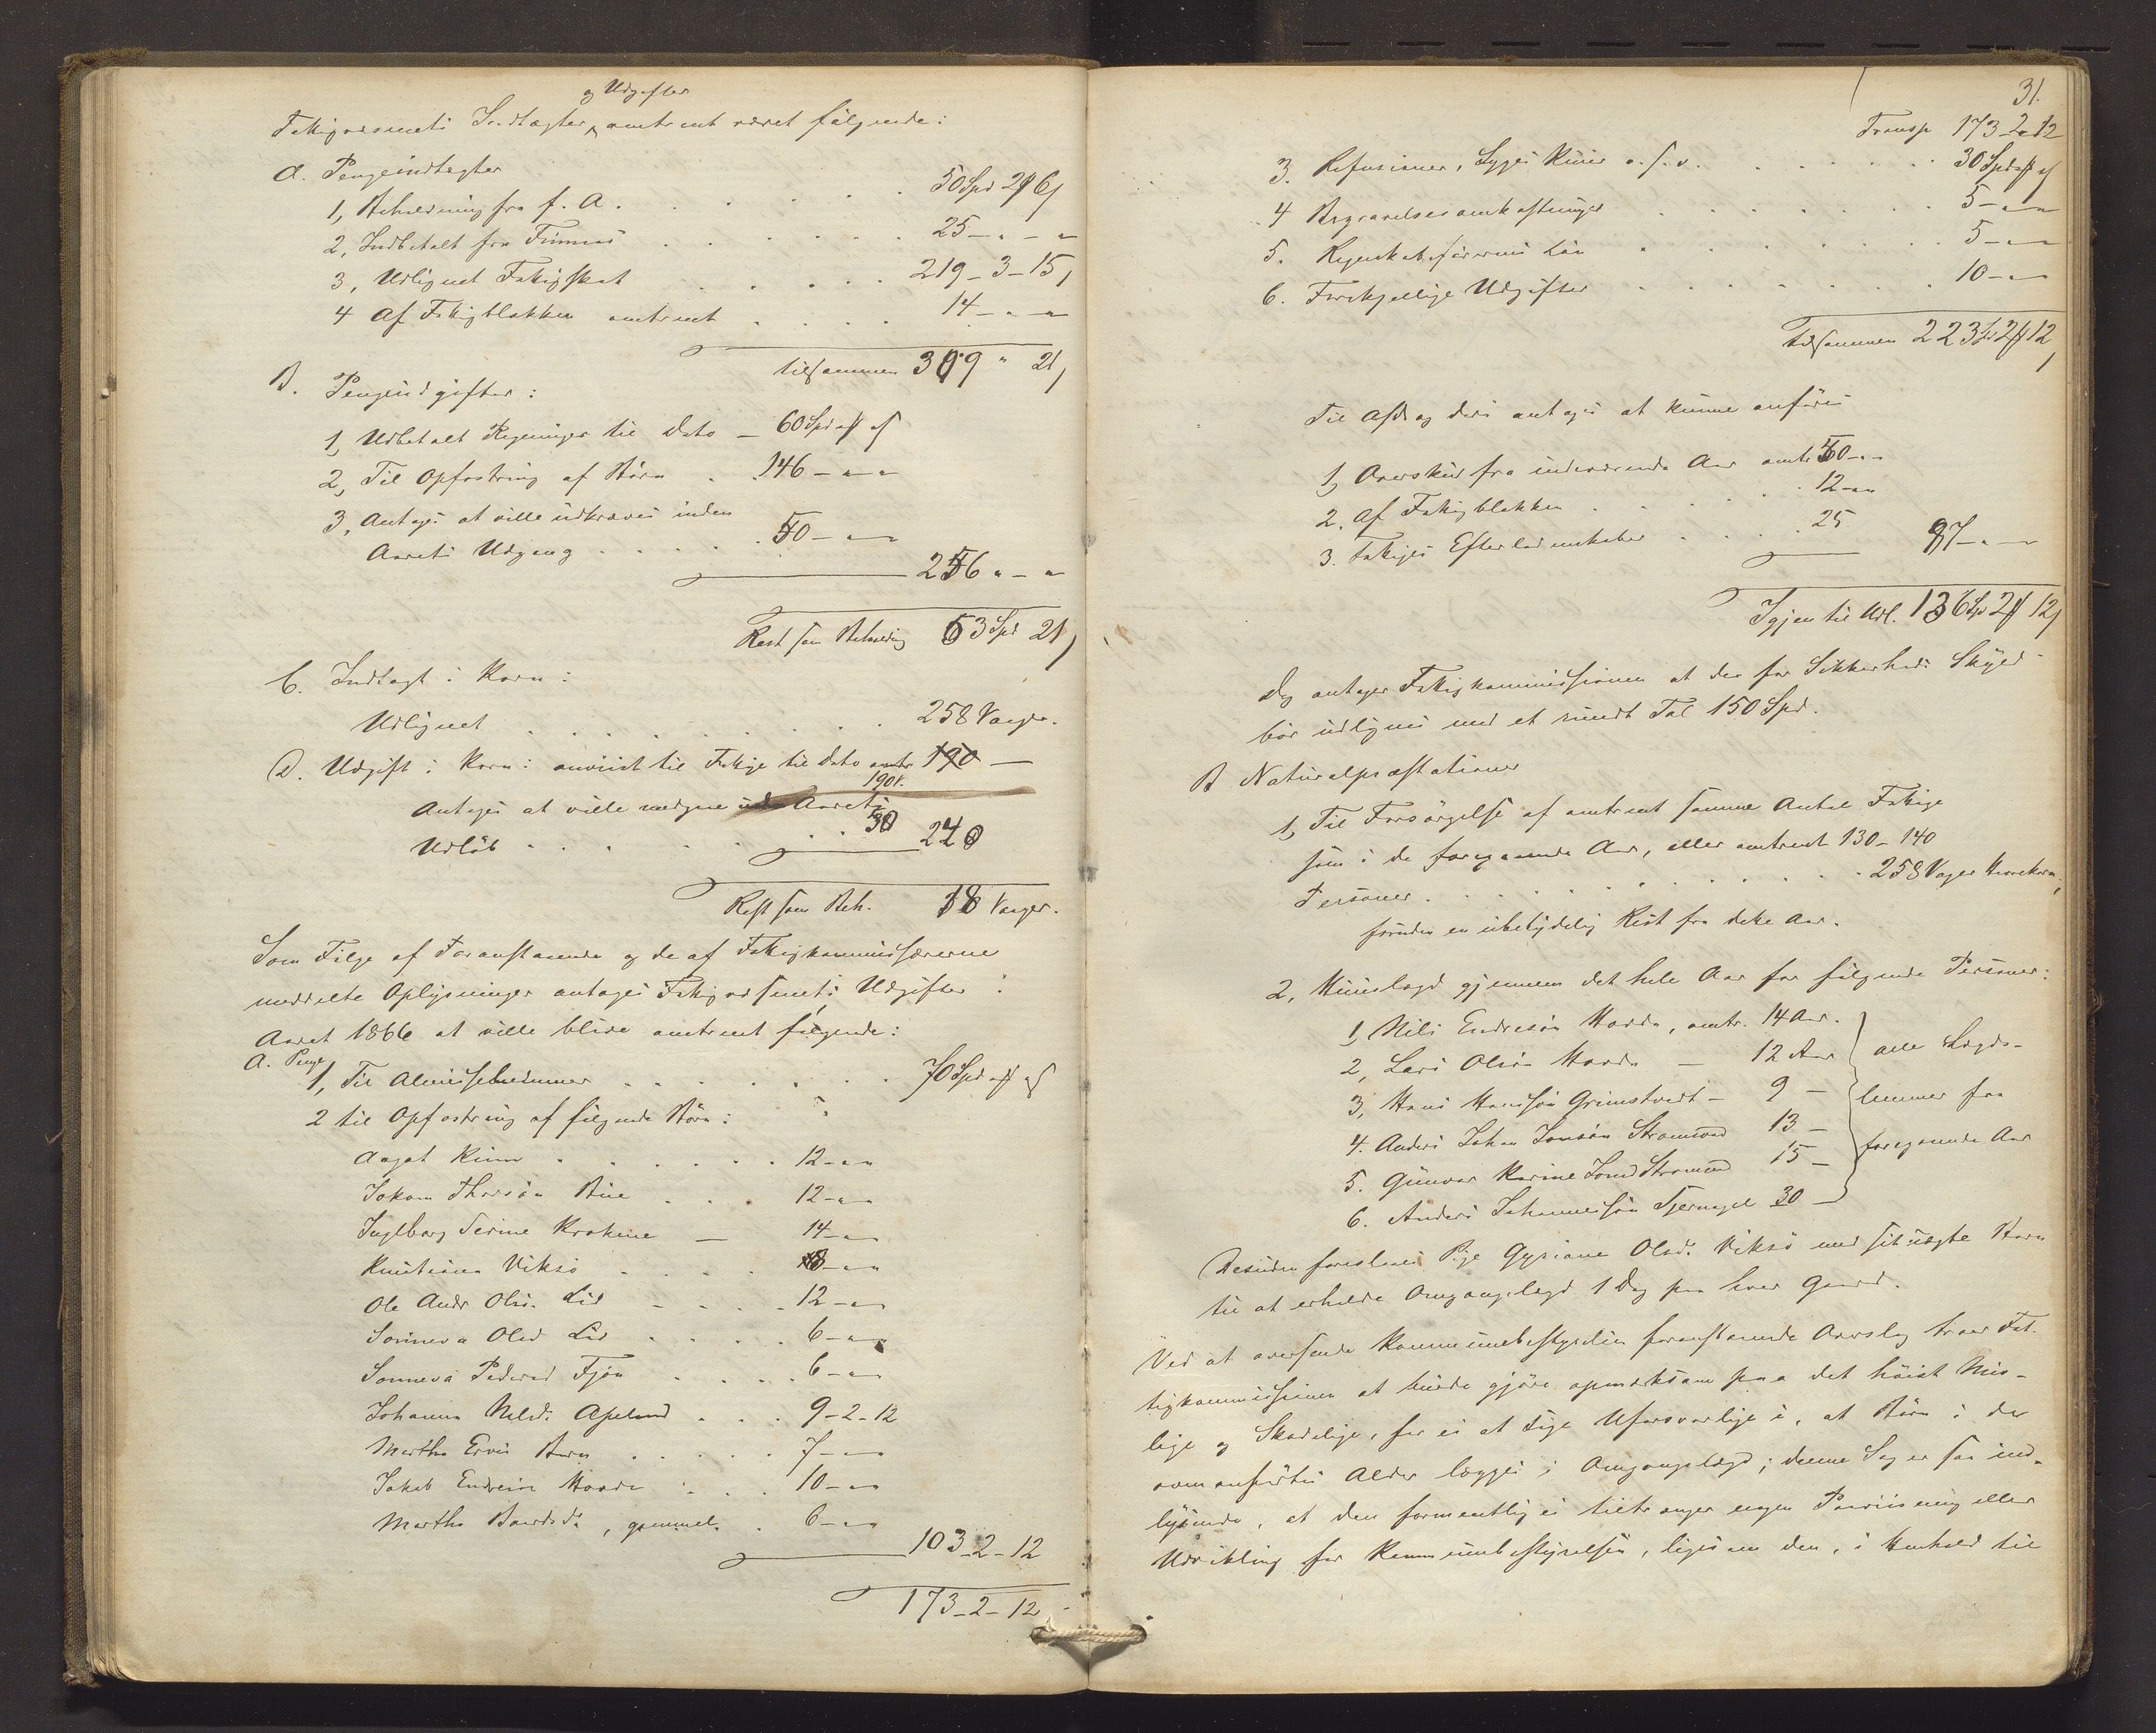 og Udgifter
Fattigvæsenets Indtægter omtrent været følgende:
A. Pengeindtægter
1, Beholdning fra f. A. . . . . 50 Spd 2 ß 6
2, Indbetalt fra Finnaas . . . . . 25 - " - "
3, Udlignet Fattigskat . . . . . 219 - 3 - 15,
4 Af Fattigblokken omtrent . . . . 14 - " - "
tilsammen 309 " 21,
B. Pengeudgifter:
1, Udbetalt Regninger til Dato - 60 Spd
2, Til Opfostring af Børn . . 146 - " - "
3, Antages at ville udkræves inden
Aarets Udgang . . . . . 50 - " - "
256 " - "
Rest som Beholdning 53 Spd 21,
C. Indtægt i Korn:
Udlignet . . . . . . 258 Vaager.
D. Udgift i Korn: anviist til Fattige til Dato omtr 190 -
190 V.
Antages at ville medgaae Aarets
Udløb . . . . . . 30 220
Rest som Beh. 38 Vaager.
Som Følge af Foranstaaende og de af Fattigkommissærerne
meddelte Oplysninger antages Fattigvæsenets Udgifter i
Aaret 1866 at ville blive omtrent følgende:
A. Penge
1, Til Almisselemmer . . . . . . 70 Spd
2 til Opfostring af følgende Børn:
Aagot . . . . . . 12 - " - "
Jokom Thorsøn . . . 12 - " - "
Inglborg Serine - 14 - " - "
Viksø . . . . 8 - " - "
Ole Andr Ols. Lid . . . . 12 - " - "
Sønneva Olsd Lid . . . . 6 - " - "
Sønneva Pedersd Fjøn . . . . 6 - " - "
Johanna Nilsd. Apeland . . . 9 - 2 - 12
Martha Børn . . . . . 7 - " - "
Jakob Endresøn Hovda . . . 10 - " - "
Martha Baardsd. , gammel . 6 - " - "
103 - 2 - 12
173 - 2 - 12
31.
Transp 173 - 2 - 12
3. Refusioner, Syges Kuur o. s. v. . . . . . . 30 Spd
4 Begravelsesomkostninger . . . . . . 5 - " - "
5. Regnskabsførerens Løn . . . . . 5 - " - "
6. Forskjellige Udgifter . . . . . . 10 - " - "
tilsammen 223 Sp 2 ß 12
Til Afdrag deri antages at kunne anføres
1, Overskud fra indeværende Aar omtr 50 - " - "
2. Af Fattigblokken . . . . . . 12 - " - "
3. Fattiges Efterladenskaber . . . . 25 87 - " - "
Igjen til Udl. 136 Sp 2 ß 12,
Dog antager Fattigkommissionen at der for Sikkerheds Skyld
bør udlignes med et rundt Tal 150 Spd.
B Naturalpræstationer
1, Til Forsørgelse af omtrent samme Antal Fattige
som i de foregaaende Aar, eller omtrent 130 - 140
Personer . . . . . . . . 258 Vaager Havrekorn,
foruden en ubetydelig Rest fra dette Aar.
2, Huuslægd gjennem det hele Aar for følgende Personer:
1, Nils Endresøn Hovda, omtr. 14 Aar.
2, Lars Olsøn Hovda - 12 Aar alle Lægds-
3, Hans Hansøn Grimstvedt - 9 - lemmer fra
4. Anders Johan Jonsøn 13 - foregaaende Aar
5. Gunvor Karine Jonsd 15 -
6. Anders Johannessøn Tjernagel 30 -
Desuden foreslaaes Pige Gyriane Olsd. Viksø med sit uægte Barn
til at erholde Omgangslægd 1 Dag paa hver Gaard.
Ved at oversende Kommunebestyrelsen foranstaaende Overslag troer Fat-
tigkommissionen at burde gjøre opmærksom paa det høist Mis-
lige og Skadelige, for ei at sige Uforsvarlige i, at Børn i den
ovenanførtes Alder lægges i Omgangslægd; denne Sag er saa ind-
lysende, at den formentlig ei tiltrænger nogen Paaviisning eller
Udvikling for Kommunebestyrelsen, ligesom den, i Henhold til